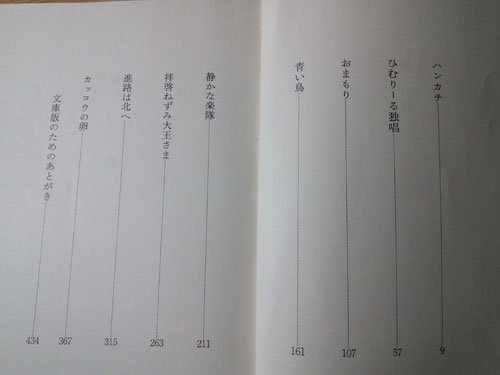 ハンカチ 9
ひむりーる独唱 57
おまもり 107
青い鳥 161
静かな楽隊 211
拝啓ねずみ大王さま 263
進路は北へ 315
カッコウの卵 367
文庫版のためのあとがき 434